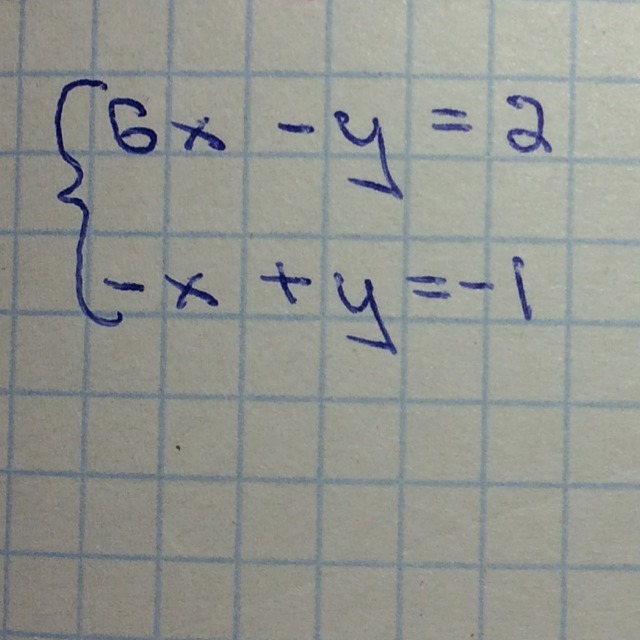 6x - y = 2
-x + y = -1